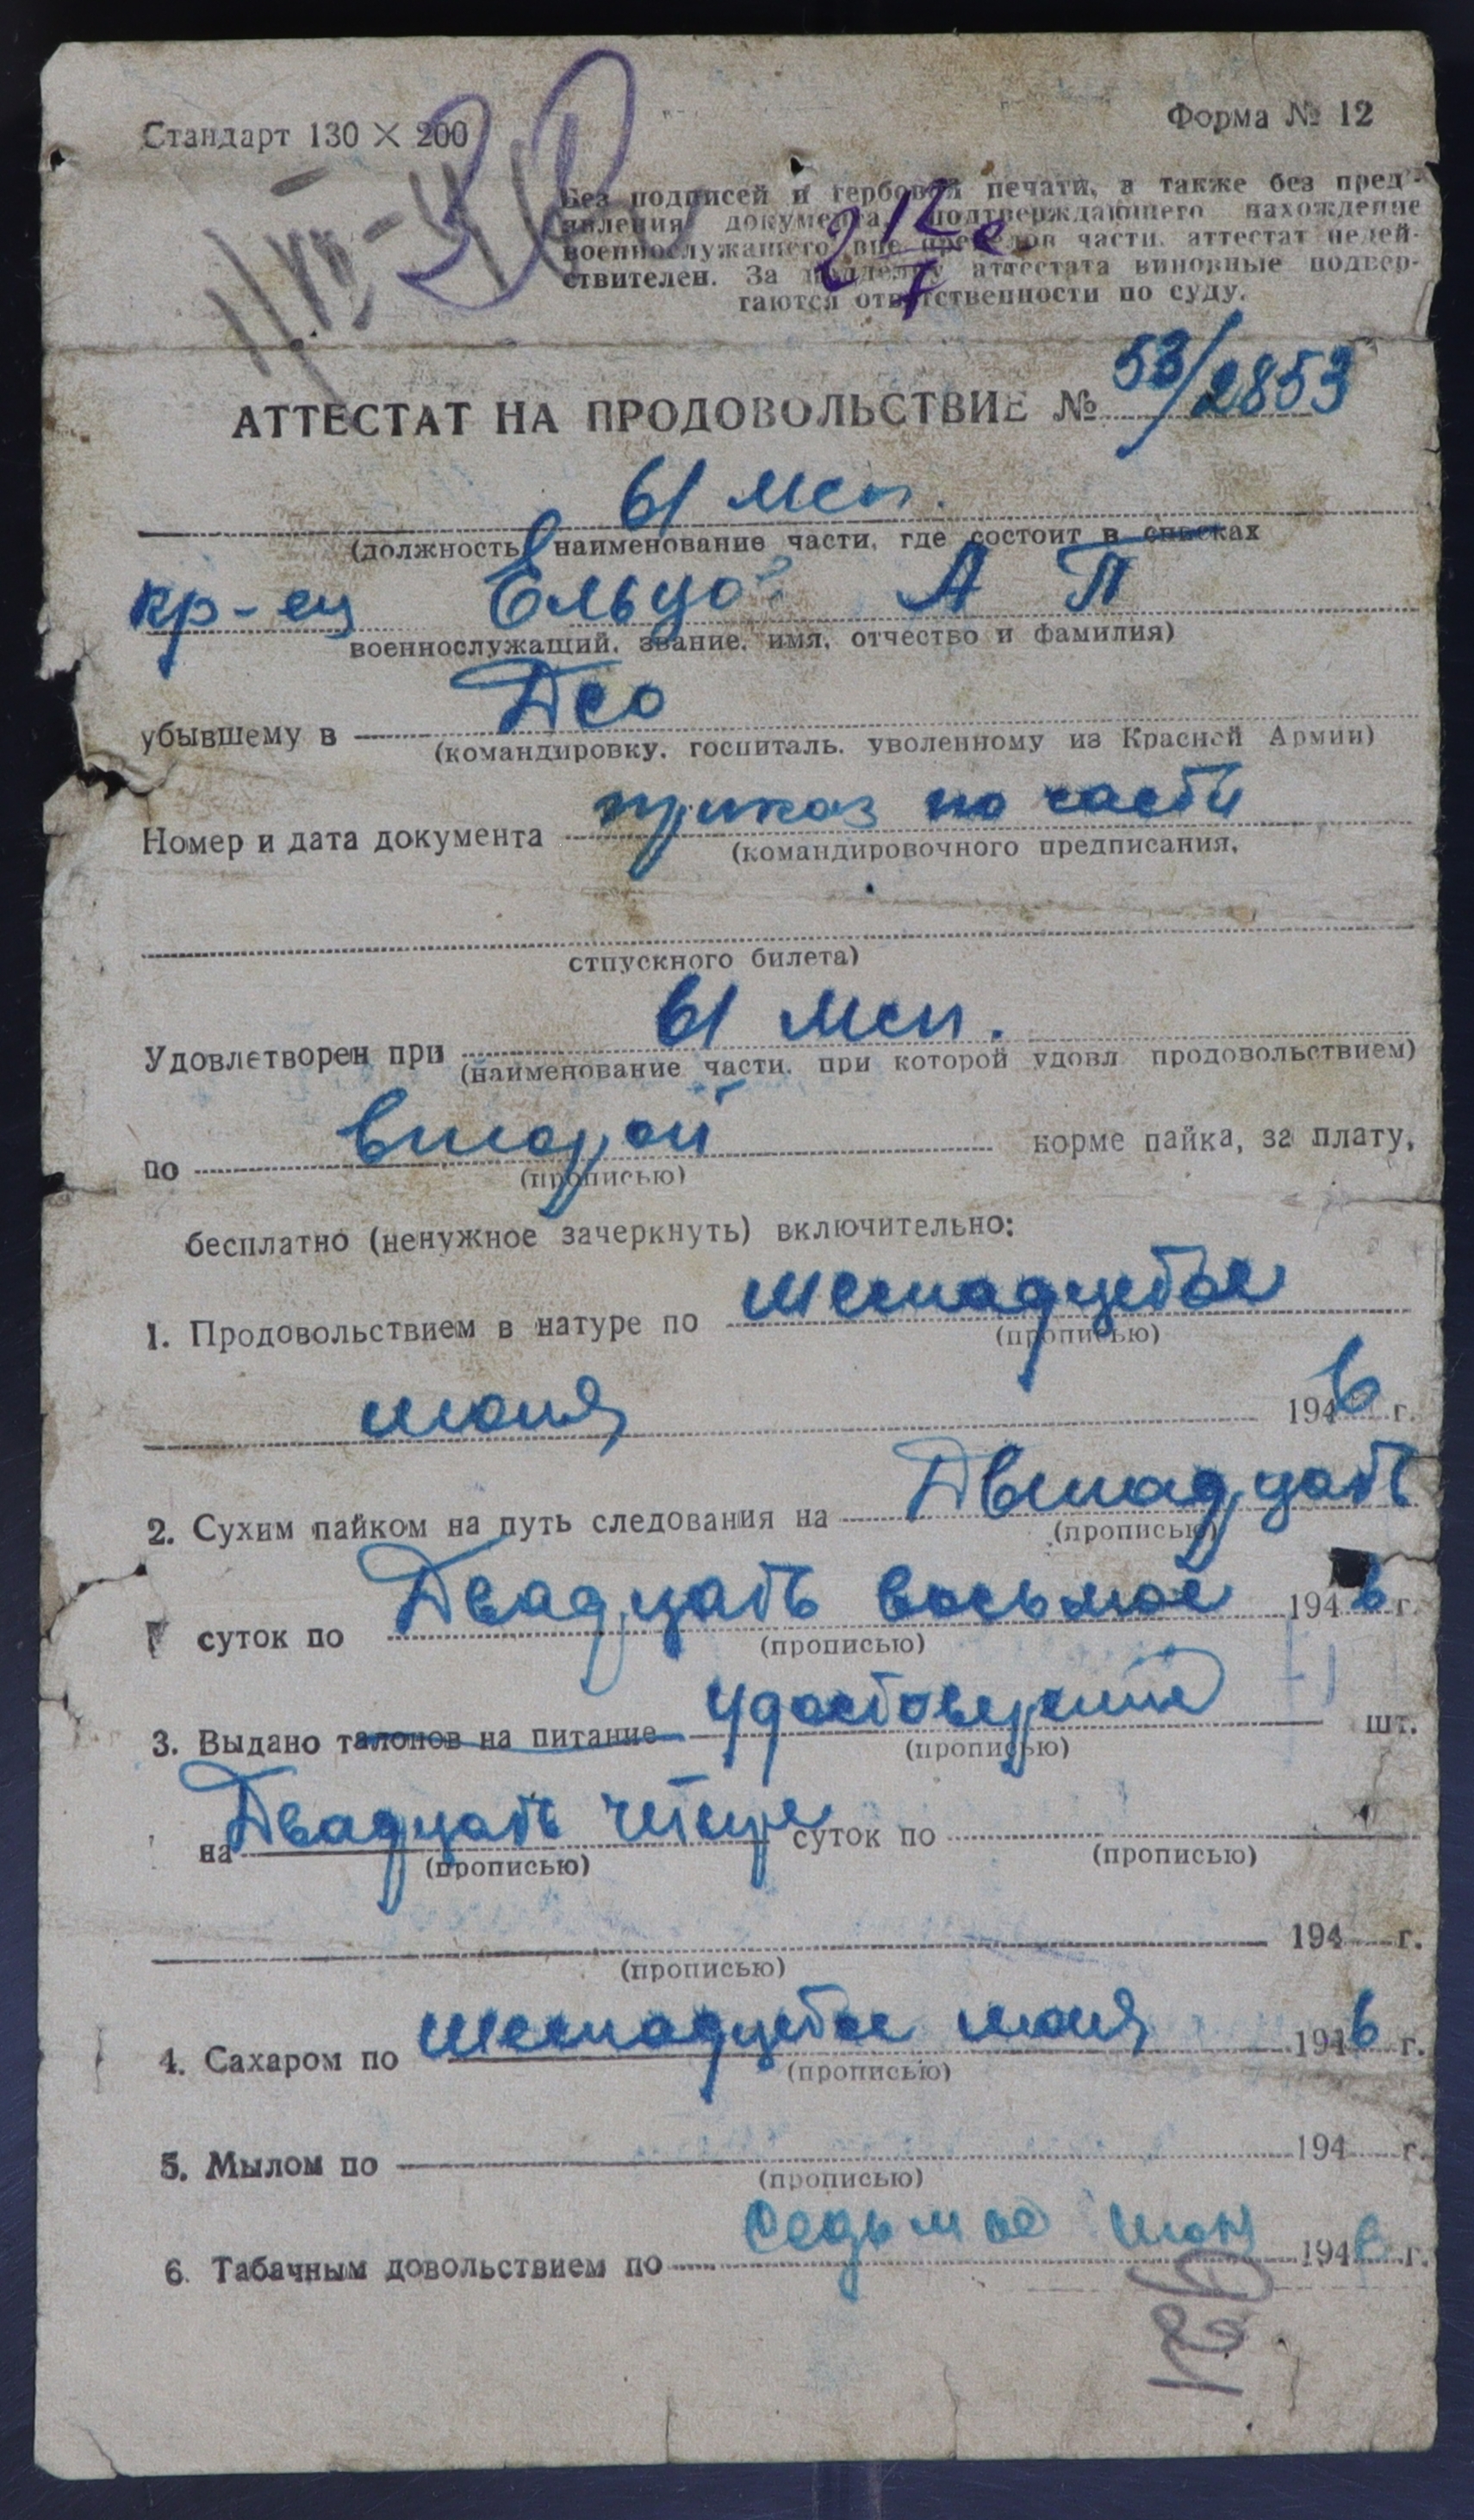 Стандарт 130 × 200
Форма № 12
Без подписей и гербовой печати, а также без пред'-
явления документа, подтверждающего нахождение
военнослужащего вне пределов части, аттестат недей-
ствителен. За подделку аттестата виновные подвер-
гаются ответственности по суду.
АТТЕСТАТ НА ПРОДОВОЛЬСТВИЕ № 53/2853
61 мсп.
(должность, наименование части, где состоит в списках
кр-ец Ельцов А П
военнослужащий, звание, имя, отчество и фамилия)
убывшему в Део
(командировку, госпиталь, уволенному из Красной Армии)
Номер и дата документа приказ по части
(командировочного предписания,
отпускного билета)
Удовлетворен при 61 мсп.
(наименование части, при которой удовл продовольствием)
по второй норме пайка, за плату,
(прописью)
бесплатно (ненужное зачеркнуть) включительно:
1. Продовольствием в натуре по шестнадцатое
(прописью)
июня 1946 г.
2. Сухим пайком на путь следования на Двенадцать
(прописью)
суток по Двадцать восьмое 1946 г.
(прописью)
3. Выдано талонов на питание шт.
(прописью)
на Двадцать четыре суток по
(прописью) (прописью)
194 г.
(прописью)
4. Сахаром по шестнадцатое июня 1946 г.
(прописью)
5. Мылом по 194 г.
(прописью)
6. Табачным довольствием по седьмое июн 1946 г.